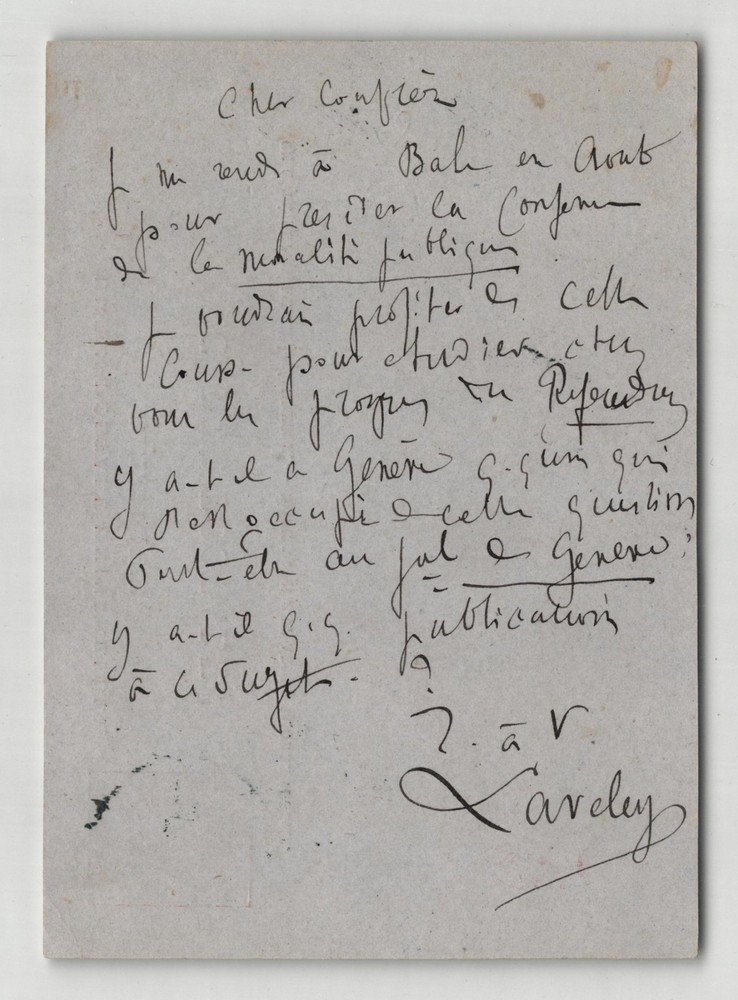 Cher Confrère
Je me rends à Bale en Aout
pour présider la Conference
de la moralité publique
Je voudrais profiter de cette
Course pour étudier chez
vous les progrès du Referendum
Y a-t-il a Genève q.qu'un qui
s'est occupé de cette question
Peut-être au Jal de Geneve?
Y a-t-il q.q. publications
à ce sujet. ?
T. à V.
Laveleye